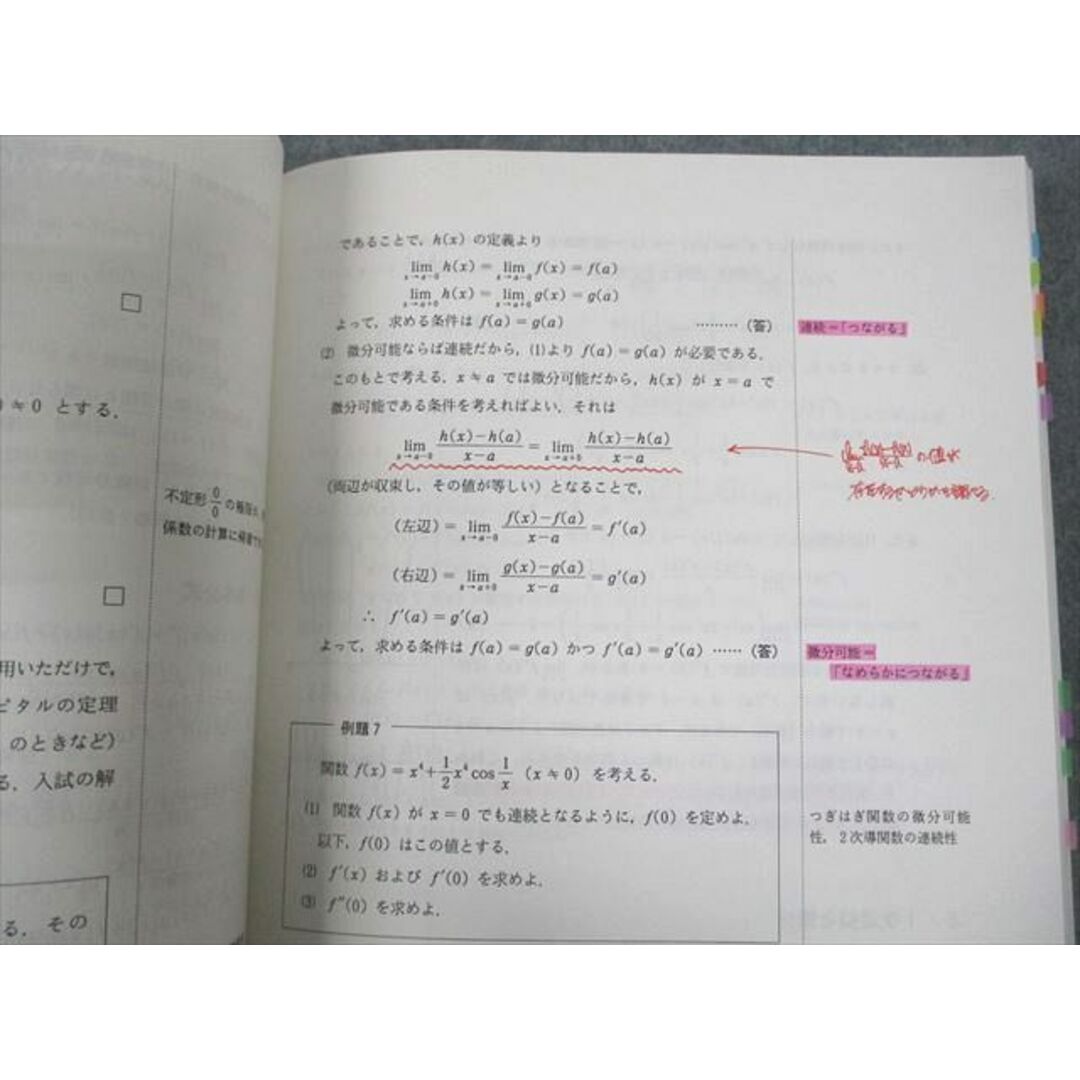 ≠0 とする.
不定形 0/0 の
係数の計算に
用いただけで,
ピタルの定理
のときなど)
る. 入試の解
る. その
であることで, h(x) の定義より
lim_{x→a-0} h(x) = lim_{x→a-0} f(x) = f(a)
lim_{x→a+0} h(x) = lim_{x→a+0} g(x) = g(a)
よって, 求める条件は f(a) = g(a) ………(答)
連続=「つながる」
(2) 微分可能ならば連続だから, (1)より f(a) = g(a) が必要である.
このもとで考える. x ≠ a では微分可能だから, h(x) が x = a で
微分可能である条件を考えればよい. それは
lim_{x→a-0} (h(x)-h(a))/(x-a) = lim_{x→a+0} (h(x)-h(a))/(x-a)
の値が
(両辺が収束し, その値が等しい) となることで,
(左辺) = lim_{x→a-0} (f(x)-f(a))/(x-a) = f'(a)
(右辺) = lim_{x→a+0} (g(x)-g(a))/(x-a) = g'(a)
∴ f'(a) = g'(a)
よって, 求める条件は f(a) = g(a) かつ f'(a) = g'(a) ……(答)
微分可能=
「なめらかにつながる」
例題7
関数 f(x) = x⁴ + 1/2 x⁴ cos 1/x (x ≠ 0) を考える.
(1) 関数 f(x) が x = 0 でも連続となるように, f(0) を定めよ.
以下, f(0) はこの値とする.
(2) f'(x) および f'(0) を求めよ.
(3) f''(0) を求めよ.
つぎはぎ関数の微分可能
性, 2次導関数の連続性